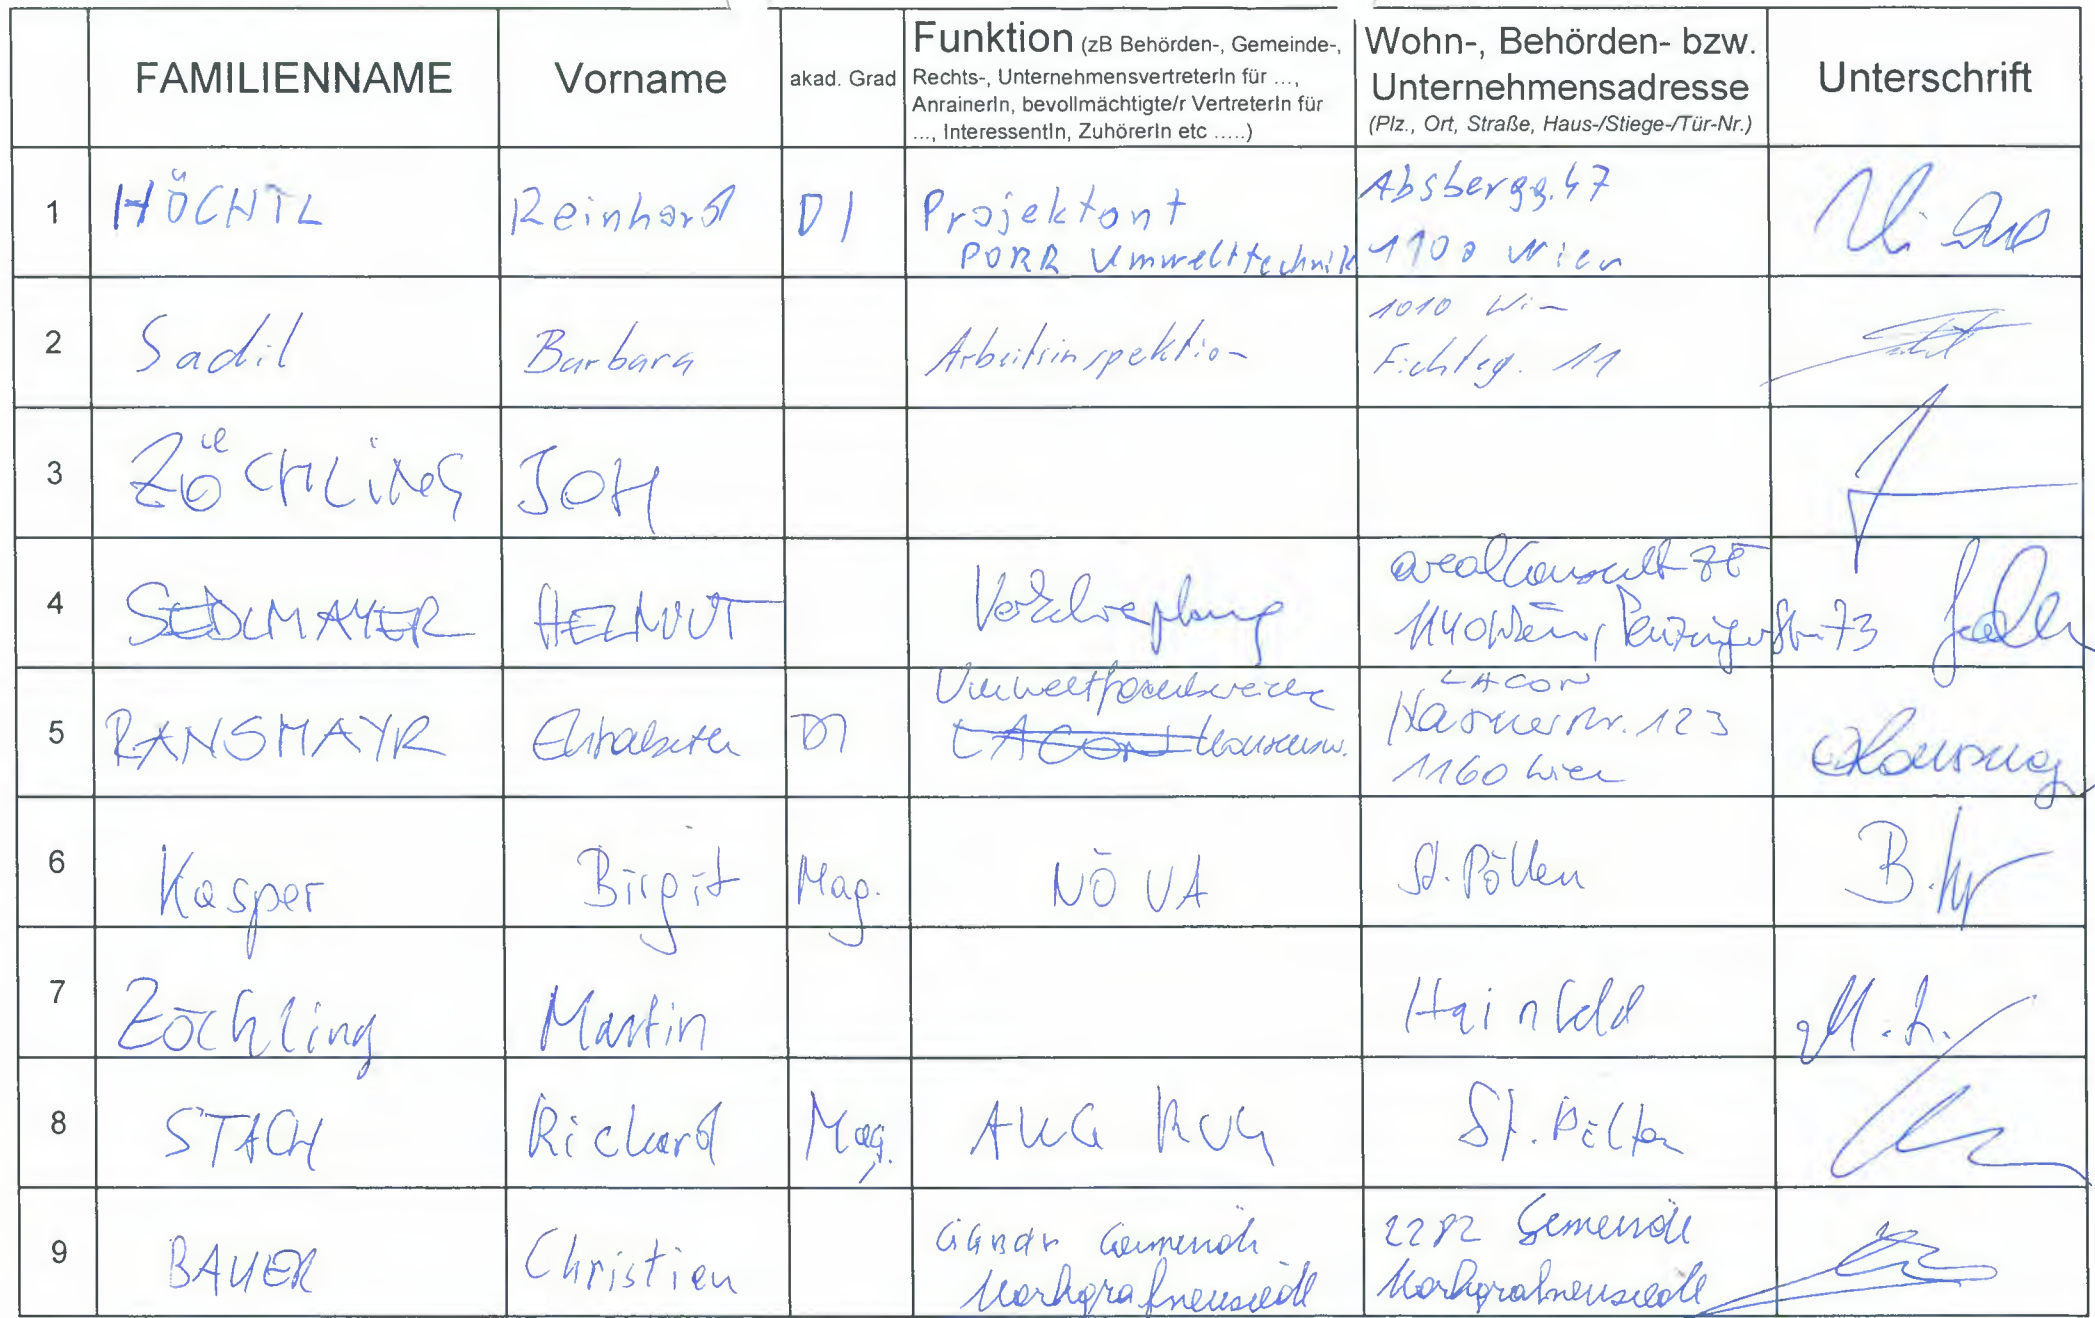 FAMILIENNAME Vorname akad. Grad Funktion (zB Behörden-, Gemeinde-,
Rechts-, UnternehmensvertreterIn für ...,
AnrainerIn, bevollmächtigte/r VertreterIn für
..., InteressentIn, ZuhörerIn etc .....)
Wohn-, Behörden- bzw.
Unternehmensadresse
(Plz., Ort, Straße, Haus-/Stiege-/Tür-Nr.)
Unterschrift
1 HÖCHTL Reinhard DI Projektant
PORR Umwelttechnik
Absbergg. 47
1100 Wien
2 Sadil Barbara Arbeitsinspektion
1010 Wien
Fichteg. 11
3 ZÖCHLING JOH
4 SEDLMAYER HELMUT
arealConsult ZT
1140 Wien, Penzingerstr. 73
5 RANSMAYR Elisabeth DI
LACON
LACON
Hasnerstr. 123
1160 Wien
6 Kasper Birgit Mag. NÖ UA St. Pölten
7 Zöchling Martin Hainfeld
8 STACH Richard Mag. St. Pölten
9 BAUER Christian
Gemeinde
Markgrafneusiedl
2282 Gemeinde
Markgrafneusiedl